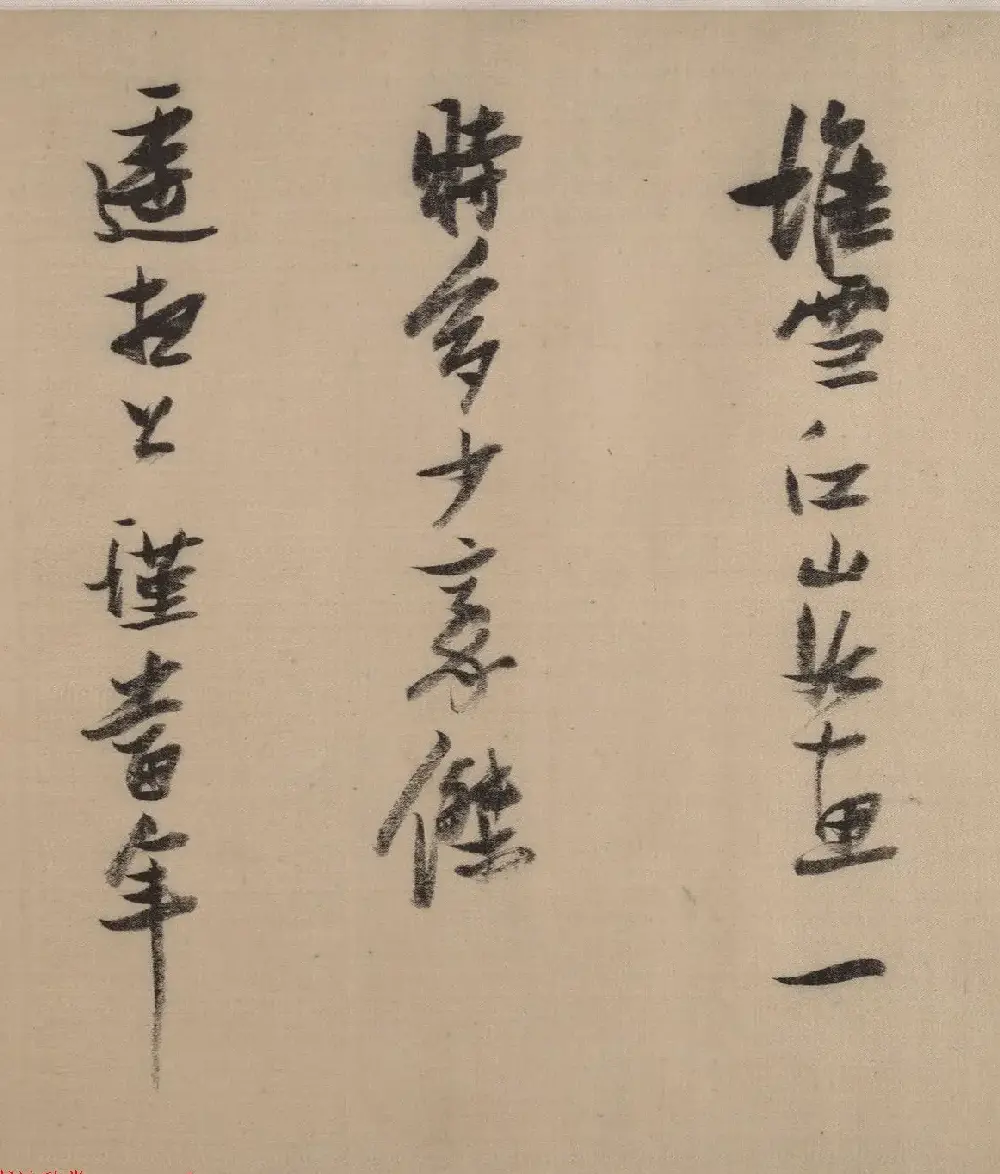 堆雪江山如畫一
時多少豪傑
遙想公瑾當年